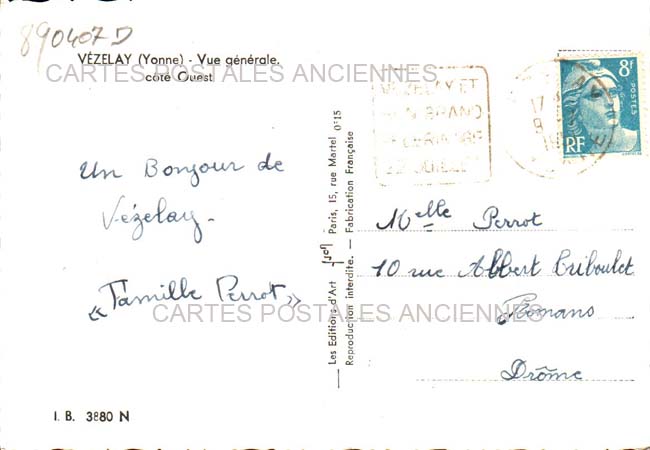 890407D
VÉZELAY (Yonne) - Vue générale.
côté Ouest
CARTES POSTALES ANCIENNES
VÉZELAY ET
SON GRAND
PÈLERINAGE
8F
POSTES
RF
Un Bonjour de
Vézelay.
« Famille Perrot »
Melle Perrot
10 rue Abbert Triboulet
Romans
Drôme
CARTES POSTALES ANCIENNES
— Les Editions d'Art Yvon Paris, 15, rue Martel
Reproduction interdite. — Fabrication Française
I. B. 3880 N